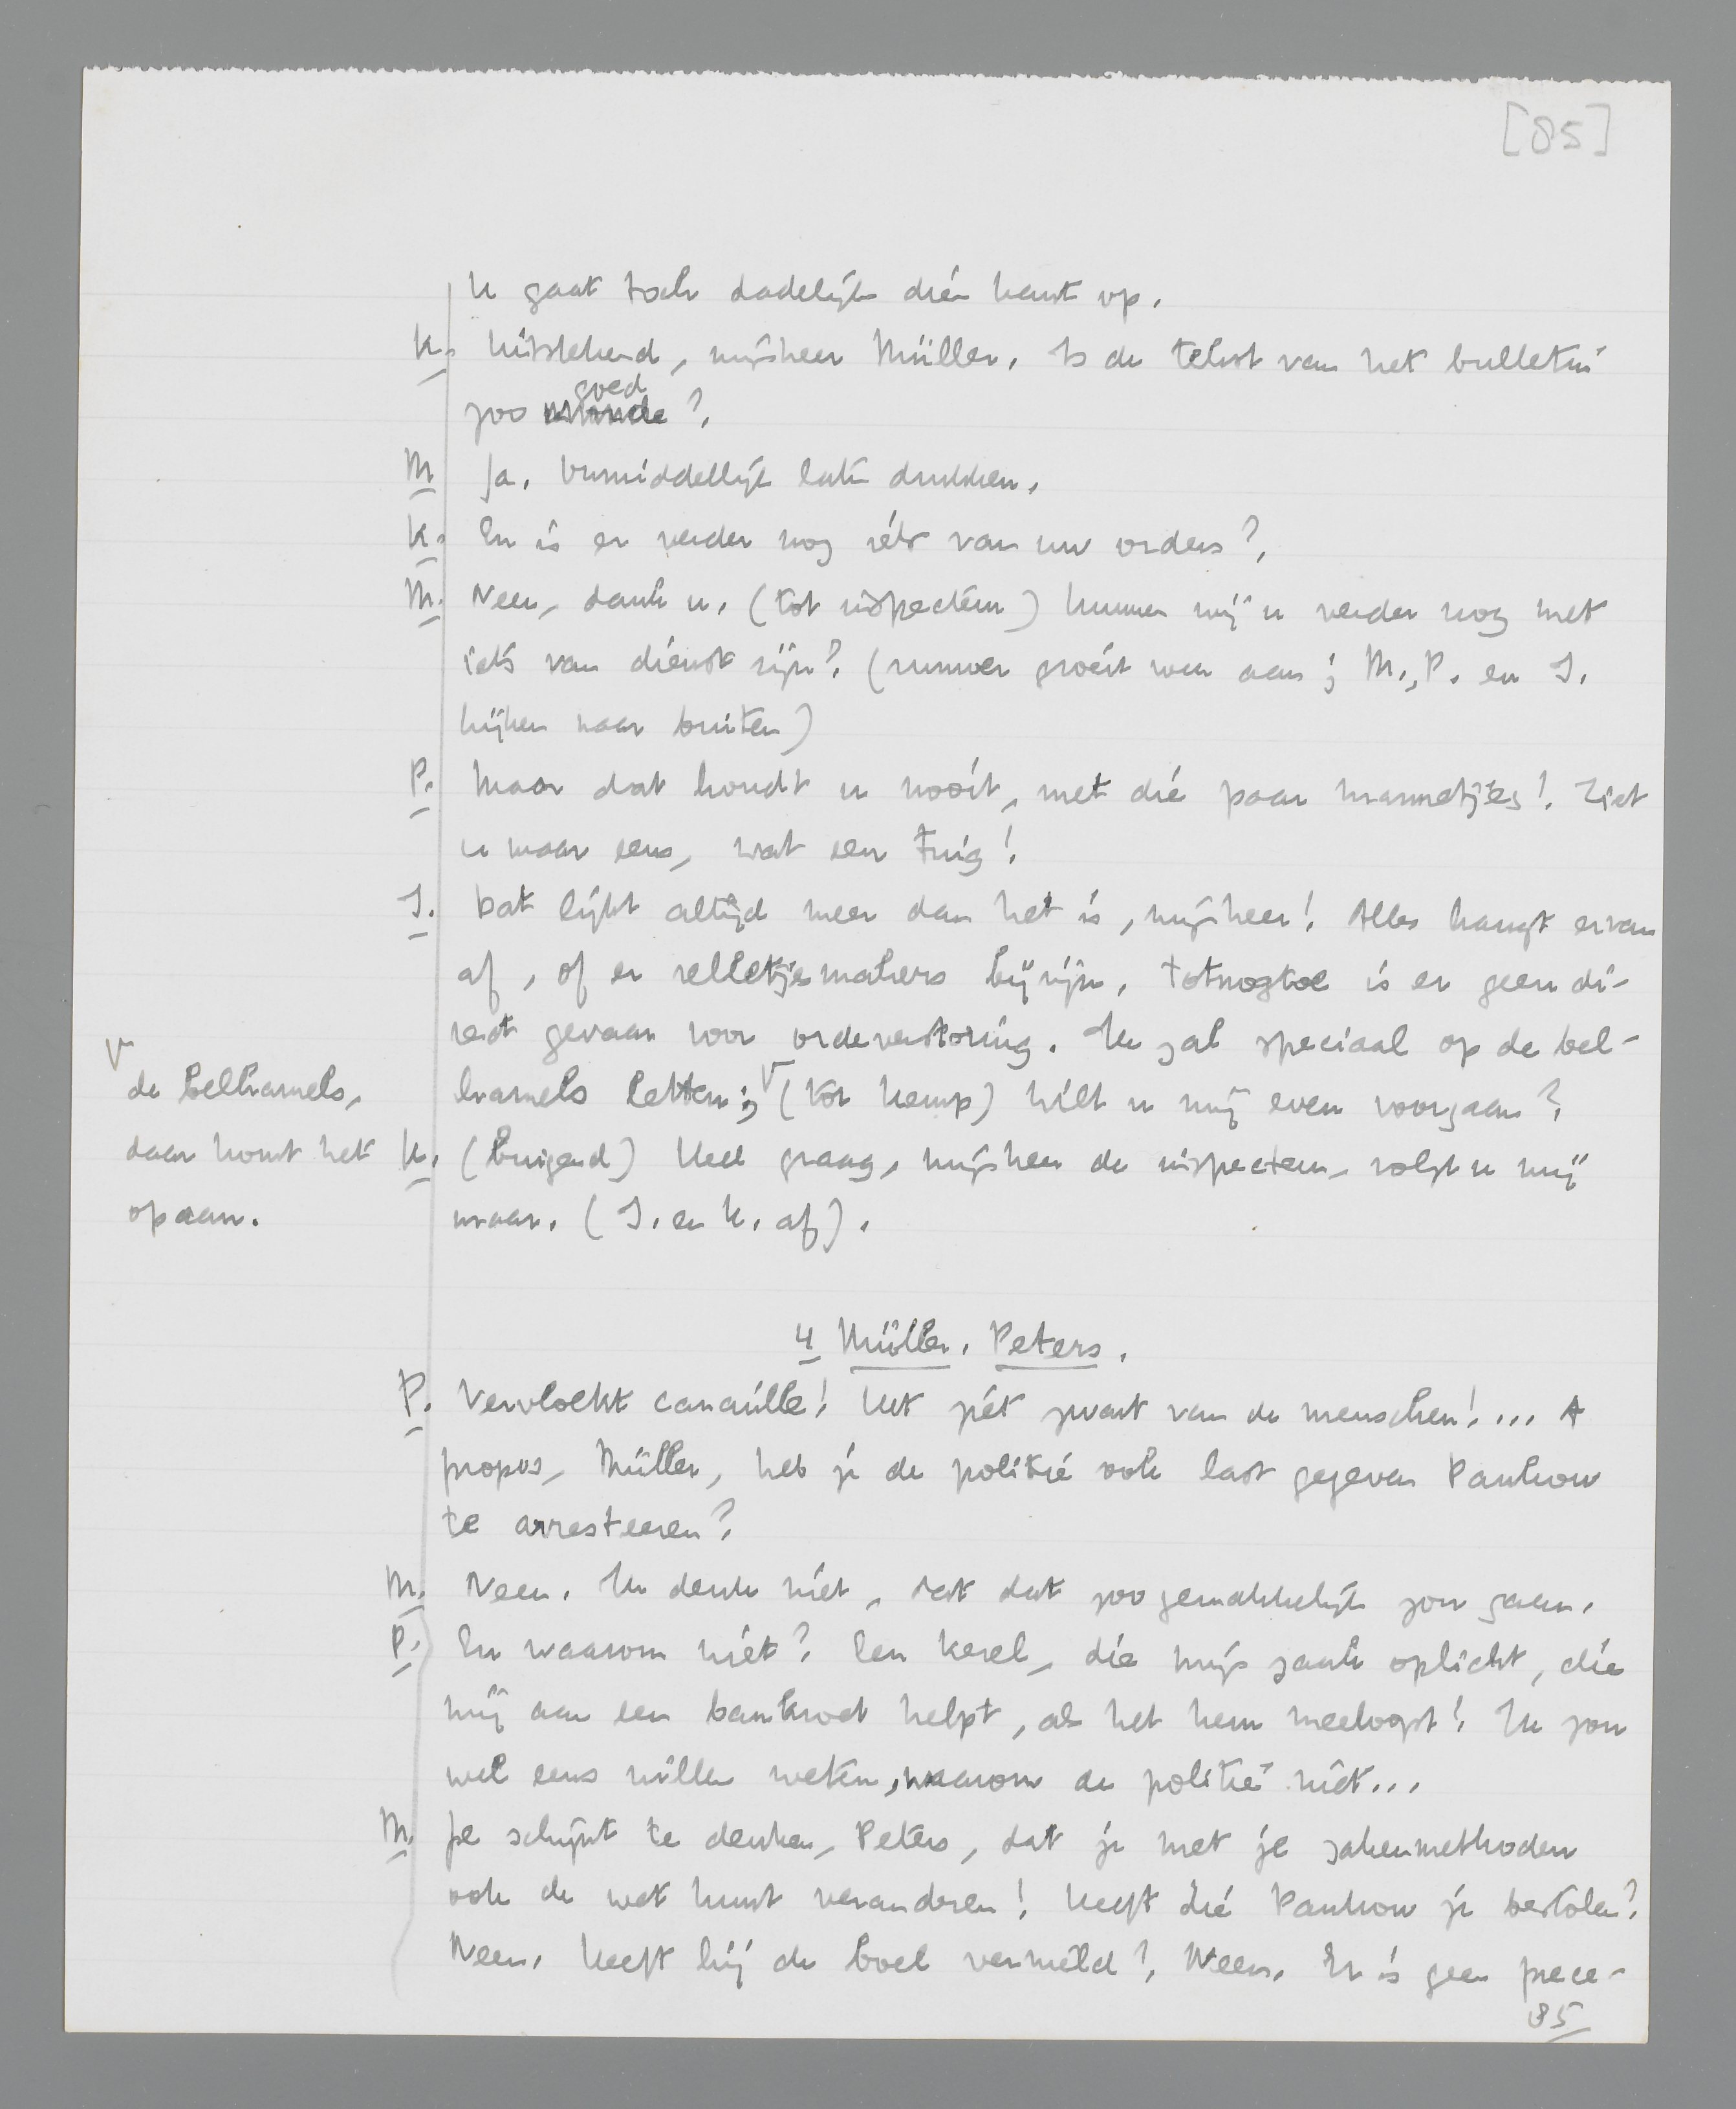 [85]
U gaat toch dadelijk dién kant op.
K. Uitstekend, mijnheer Müller. Is de tekst van het bulletin
goed
zoo ?
M. Ja. Onmiddellijk laten drukken.
K. En is er verder nog iets van uw orders?
M. Neen, dank u. (tot inspecteur) Kunnen wij u verder nog met
iets van dienst zijn? (rumoer groeit weer aan; M., P. en I.
kijken naar buiten)
P. Maar dat houdt u nooit, met die paar mannetjes! Ziet
u maar eens, wat een tuig!
I. Dat lijkt altijd meer dan het is, mijnheer! Alles hangt ervan
af, of er relletjesmakers bij zijn. Totnogtoe is er geen di-
rect gevaar voor ordeverstoring. Ik zal speciaal op de bel-
hamels letten; V (tot Kemp) Wilt u mij even voorgaan?
V de belhamels,
daar komt het
op aan.
K. (buigend) Heel graag, mijnheer de inspecteur, volgt u mij
maar. (I. en K. af).
4 Müller. Peters.
P. Vervloekt canaille! Het ziet zwart van de menschen!... A
propos, Müller, heb je de politie ook last gegeven Pankow
te arresteeren?
M. Neen. Ik denk niet, dat dat zoo gemakkelijk zou gaan.
P. En waarom niet? Een kerel, die mijn zaak oplicht, die
mij aan een bankroet helpt, als het hem meeloopt! Ik zou
wel eens willen weten, waarom de politie niet...
M. Je schijnt te denken, Peters, dat je met je zakenmethoden
ook de wet kunt veranderen! Heeft die Pankow je bestolen?
Neen. Heeft hij de boel vernield? Neen. Er is geen prece-
85